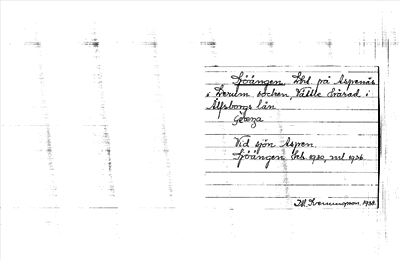 Sjöängen, Lht. på Aspenäs
i Lerum socken, Vättle härad i
Älfsborgs län
Gereza
Vid sjön Aspen.
Sjöängen beb. 1920, nu 1926.
1928.